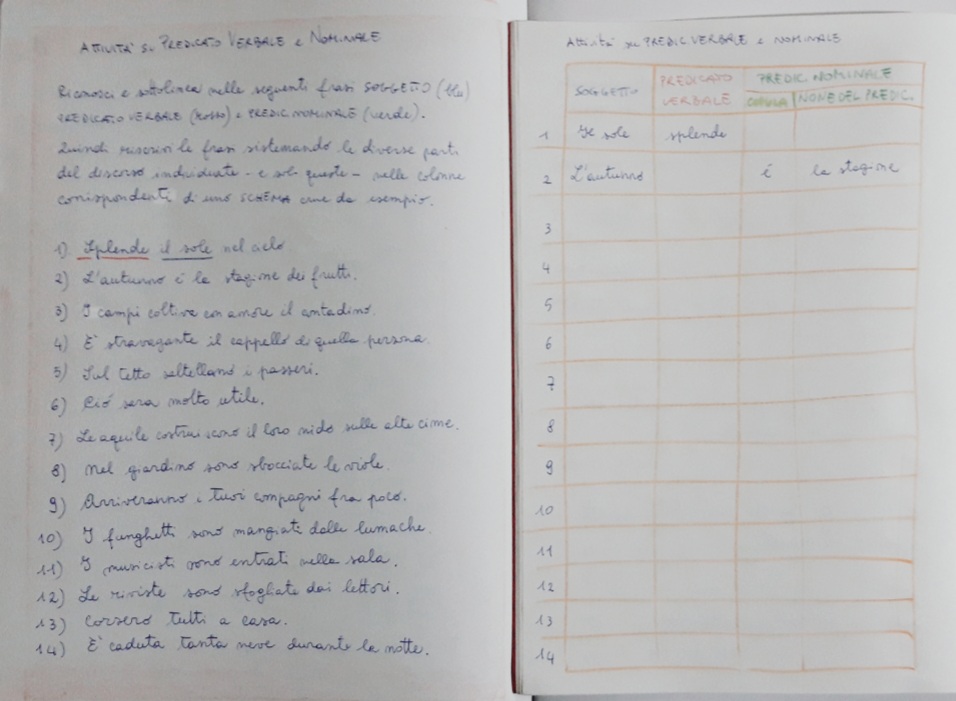 ATTIVITÀ SU PREDICATO VERBALE e NOMINALE
Riconosci e sottolinea nelle seguenti frasi SOGGETTO (blu)
PREDICATO VERBALE (rosso) e PREDIC. NOMINALE (verde).
Quindi riscrivi le frasi sistemando le diverse parti
del discorso individuate - e solo queste - nelle colonne
corrispondenti di uno SCHEMA come da esempio.
1) Splende il sole nel cielo
2) L'autunno é la stagione dei frutti.
3) I campi coltiva con amore il contadino.
4) E' stravagante il cappello di quella persona.
5) Sul tetto saltellano i passeri.
6) Ció sara molto utile.
7) Le aquile costruiscono il loro nido sulle alte cime.
8) Nel giardino sono sbocciate le viole.
9) Arriveranno i tuoi compagni fra poco.
10) I funghetti sono mangiati dalle lumache.
11) I musicisti sono entrati nella sala.
12) Le riviste sono sfogliate dai lettori.
13) Corsero tutti a casa.
14) E' caduta tanta neve durante la notte.
Attività su PREDIC. VERBALE e NOMINALE
SOGGETTO PREDICATO VERBALE PREDIC. NOMINALE
COPULA NOME DEL PREDIC.
1 Il sole splende
2 L'autunno é la stagione
3
4
5
6
7
8
9
10
11
12
13
14